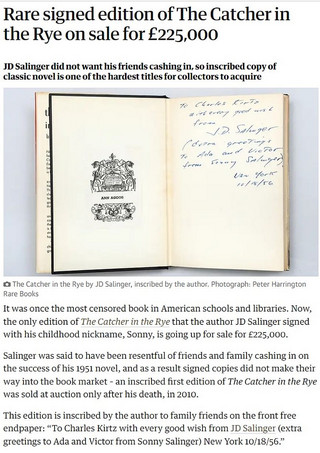 Rare signed edition of The Catcher in
the Rye on sale for £225,000
JD Salinger did not want his friends cashing in, so inscribed copy of
classic novel is one of the hardest titles for collectors to acquire
To Charles Kirtz
with every good wish
from
J.D. Salinger
(Extra greetings
to Ada and Victor
from Sonny Salinger)
New York
10/18/56
The Catcher in the Rye by JD Salinger, inscribed by the author. Photograph: Peter Harrington
Rare Books
It was once the most censored book in American schools and libraries. Now,
the only edition of The Catcher in the Rye that the author JD Salinger signed
with his childhood nickname, Sonny, is going up for sale for £225,000.
Salinger was said to have been resentful of friends and family cashing in on
the success of his 1951 novel, and as a result signed copies did not make their
way into the book market - an inscribed first edition of The Catcher in the Rye
was sold at auction only after his death, in 2010.
This edition is inscribed by the author to family friends on the front free
endpaper: “To Charles Kirtz with every good wish from JD Salinger (extra
greetings to Ada and Victor from Sonny Salinger) New York 10/18/56.”